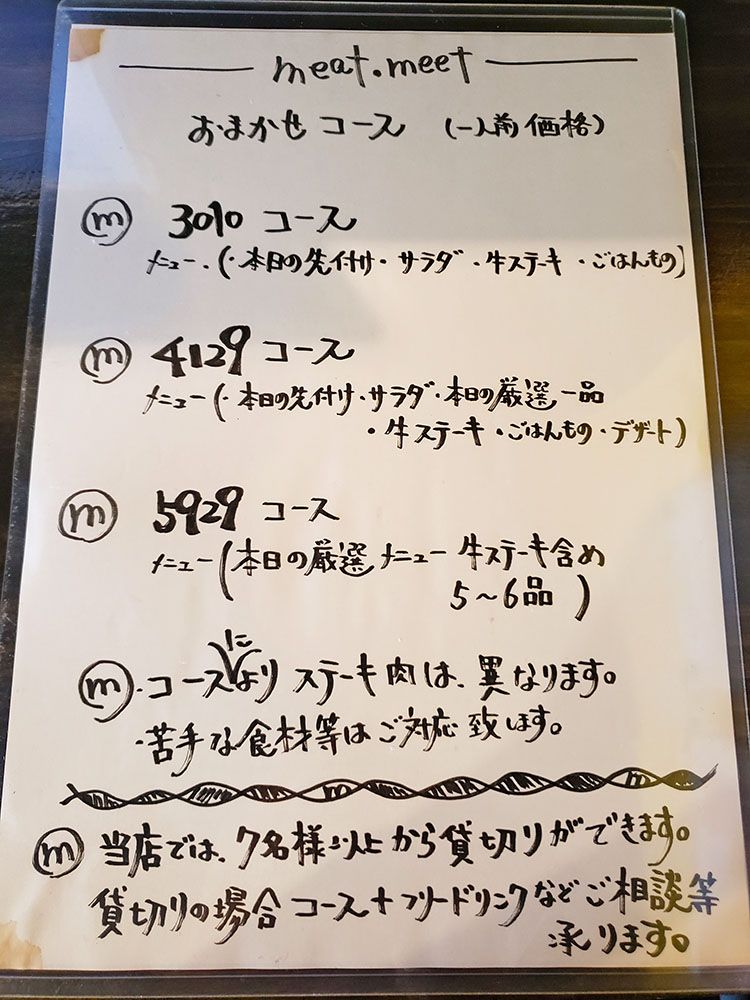 meat.meet
おまかせ コース (一人前 価格)
m 3010 コース
メニュー.(・本日の先付け・サラダ・牛ステーキ・ごはんもの)
m 4129 コース
メニュー(・本日の先付け・サラダ・本日の厳選一品
・牛ステーキ・ごはんもの・デザート)
m 5929 コース
メニュー(本日の厳選メニュー 牛ステーキ含め
5〜6品)
m ・コースにより ステーキ肉は、異なります。
・苦手な食材等はご対応致します。
m 当店では、7名様以上から貸切りができます。
貸切りの場合 コース+フリードリンクなどご相談等
承ります。